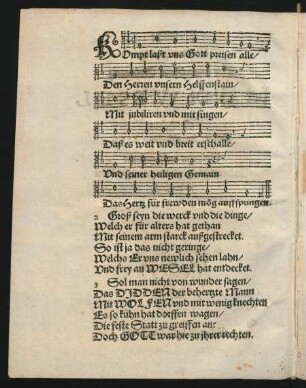 KOmpt laßt vns Gott preisen alle/
Den Herren vnsern Helffenstain/
Mit jubiliren vnd mit singen/
Daß es weit vnd breit erschalle/
Vnd seiner heiligen Gemain
Das Hertz für frewden mög auffspringen.
2 Groß seyn die werck vnd die dinge/
Welch er für alters hat gethan
Mit seinem arm starck außgestrecket.
So ist ja das nicht geringe/
Welchs Er vns newlich sehen lahn/
Vnd frey an WESEL hat entdecket.
3 Sol man nicht von wunder sagen/
Das DIDDEN der behertzte Mann
Mit WOLFEN vnd mit wenig knechten
Es so kühn hat dörffen wagen/
Die feste Statt zu greiffen an:
Doch GOTT war hie zu jhrer rechten.